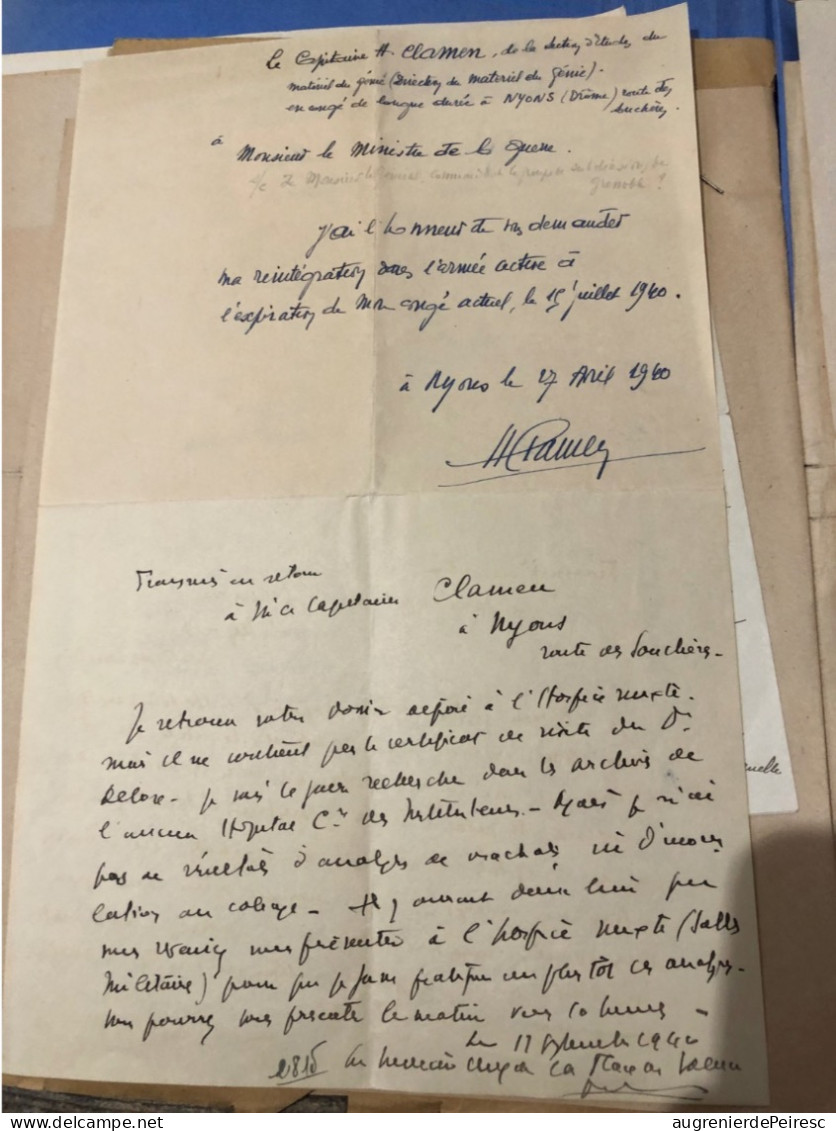 Le Capitaine H. Clamen, de la section d'études du
matériel du génie (Direction du matériel du Génie).
en congé de longue durée à NYONS (Drôme) route des
à
Monsieur le Ministre de la guerre.
s/c de Monsieur le Général, commandant le groupe de subdivisions de
Grenoble
J'ai l'honneur de vous demander
ma réintégration dans l'armée active à
l'expiration de mon congé actuel, le 15 juillet 1940.
à Nyons le 27 Avril 1940
HClamen
Transmis en retour
à M. le Capitaine Clamen
à Nyons
route des
Je retrouve votre dossier à l'Hospice mixte.
mais il ne contient pas le certificat de visite du Dr
Delore. Je fais recherche dans les archives de
l'ancien Hôpital Cre des Instituteurs. Mais je n'ai
pas de résultats d'analyses de crachats, ni d'inocu
lation au cobaye. Il y aurait donc lieu que
vous veniez vous présenter à l'hospice mixte (Salles
Militaires) pour que je fasse pratiquer au plus tôt ces analyses.
Vous pourrez vous présenter le matin vers 10 heures.
Le 11 1940
2815 Le médecin chef de la Place de Valence
uelle
augrenierdePeiresc